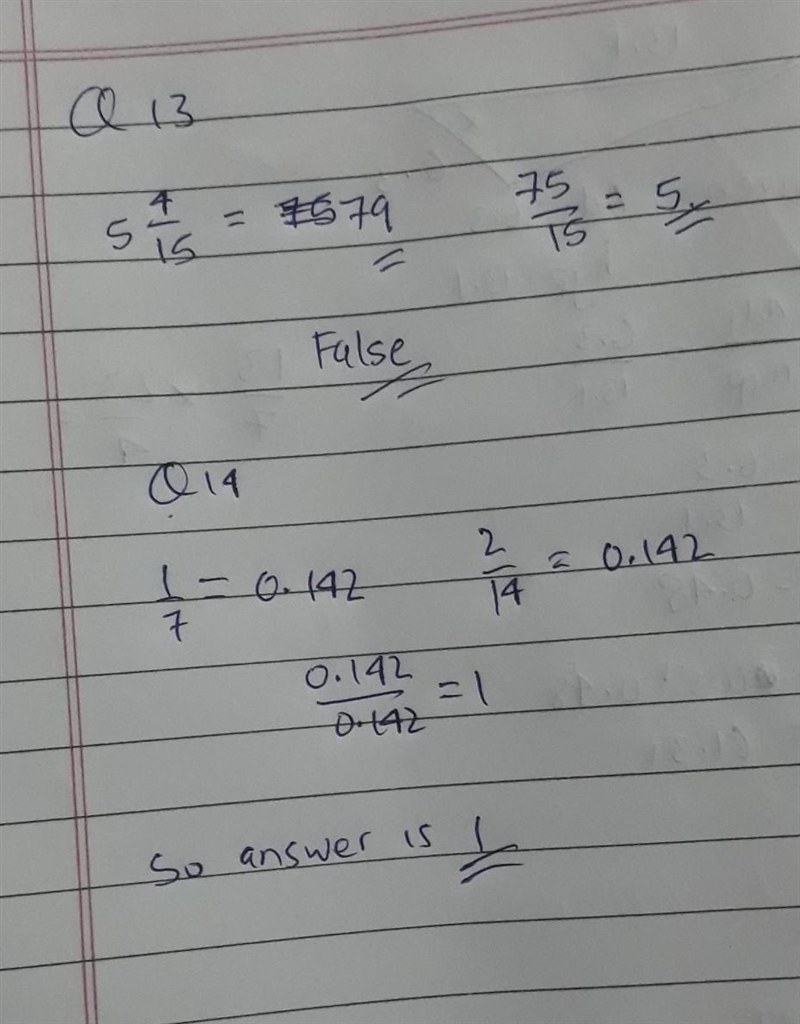 Q 13
5 4/15 = 79 75/15 = 5
False
Q 14
1/7 = 0.142 2/14 = 0.142
0.142/0.142 = 1
So answer is 1